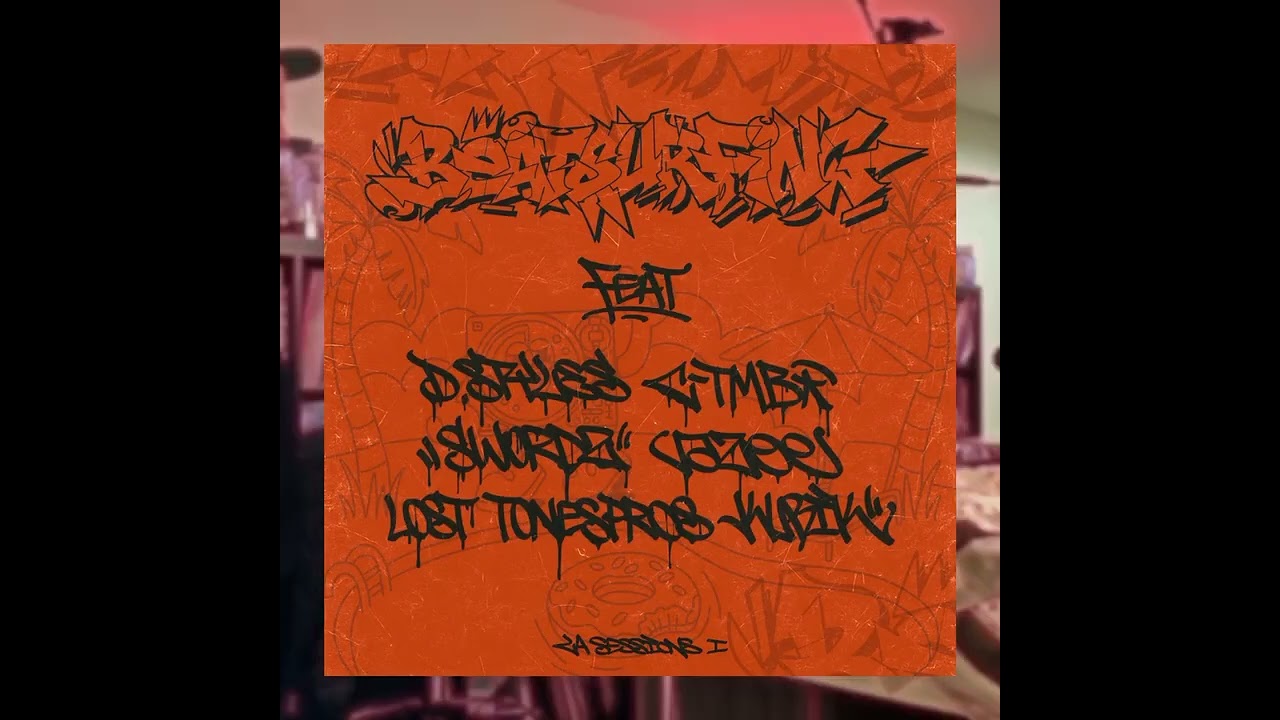 BEATSURFING
FEAT
D.STYLES C-TMBR
"SWORDZ" JAZEE
LOST TONESPROS KUBIK
LA SESSIONS I